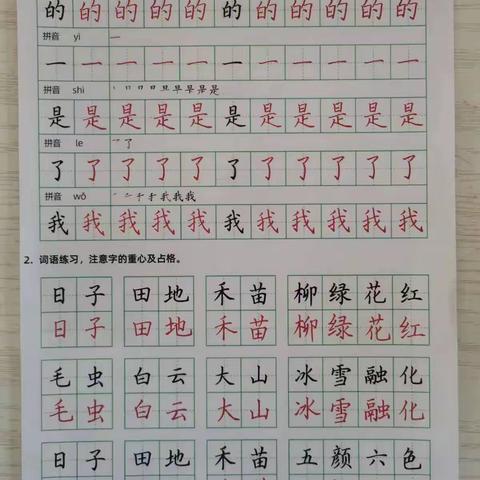 的的的的的的的的的的的
拼音 yi 一
一一一一一一一一一一一
拼音 shi
是是是是是是是是是是是
拼音 le 乛了
了了了了了了了了了了了
拼音 wǒ
我我我我我我我我我我我
2. 词语练习，注意字的重心及占格。
日子 田地 禾苗 柳绿花红
日子 田地 禾苗 柳绿花红
毛虫 白云 大山 冰雪融化
毛虫 白云 大山 冰雪融化
日子 田地 禾苗 五颜六色